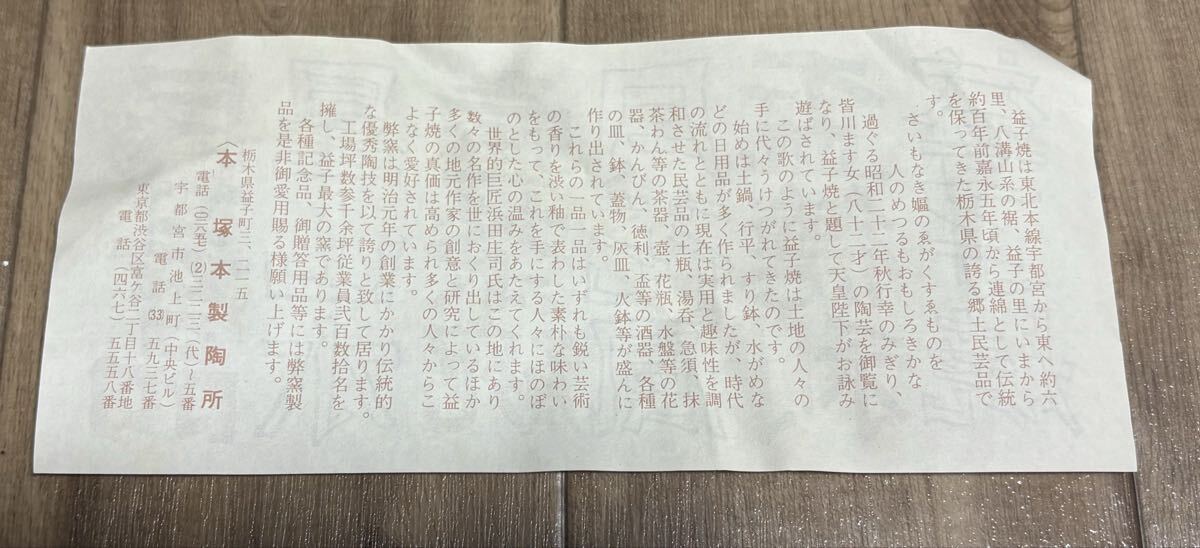 益子焼は東北本線宇都宮から東へ約六
里、八溝山系の裾、益子の里にいまから
約百年前嘉永五年頃から連綿として伝統
を保ってきた栃木県の誇る郷土民芸品で
す。
さいもなき嫗のゑがくすゑものを
人のめつるもおもしろきかな
過ぐる昭和二十二年秋行幸のみぎり、
皆川ます女(八十二才)の陶芸を御覧に
なり、益子焼と題して天皇陛下がお詠み
遊ばされています。
この歌のように益子焼は土地の人々の
手に代々うけつがれてきたのです。
始めは土鍋、行平、すり鉢、水がめな
どの日用品が多く作られましたが、時代
の流れとともに現在は実用と趣味性を調
和させた民芸品の土瓶、湯呑、急須、抹
茶わん等の茶器、壺、花瓶、水盤等の花
器、かんびん、徳利、盃等の酒器、各種
の皿、鉢、蓋物、灰皿、火鉢等が盛んに
作り出されています。
これらの一品一品はいずれも鋭い芸術
の香りを渋い釉で表わした素朴な味わい
をもって、これを手にする人々にほのぼ
のとした心の温みをあたえてくれます。
世界的巨匠浜田庄司氏はこの地にあり
数々の名作を世におくり出しているほか
多くの地元作家の創意と研究によって益
子焼の真価は高められ多くの人々からこ
よなく愛好されています。
弊窯は明治元年の創業にかかり伝統的
な優秀陶技を以て誇りと致して居ります。
工場坪数参千余坪従業員弐百数拾名を
擁し、益子最大の窯であります。
各種記念品、御贈答用品等には弊窯製
品を是非御愛用賜る様願い上げます。
栃木県益子町三、二一五
本塚本製陶所
電話(〇二八五七)(2)三二二三(代〜五番
宇都宮市池上町(中央ビル)
電話(33)五九三七番
東京都渋谷区富ケ谷二丁目十八番地
電話(四六七)五五五八番